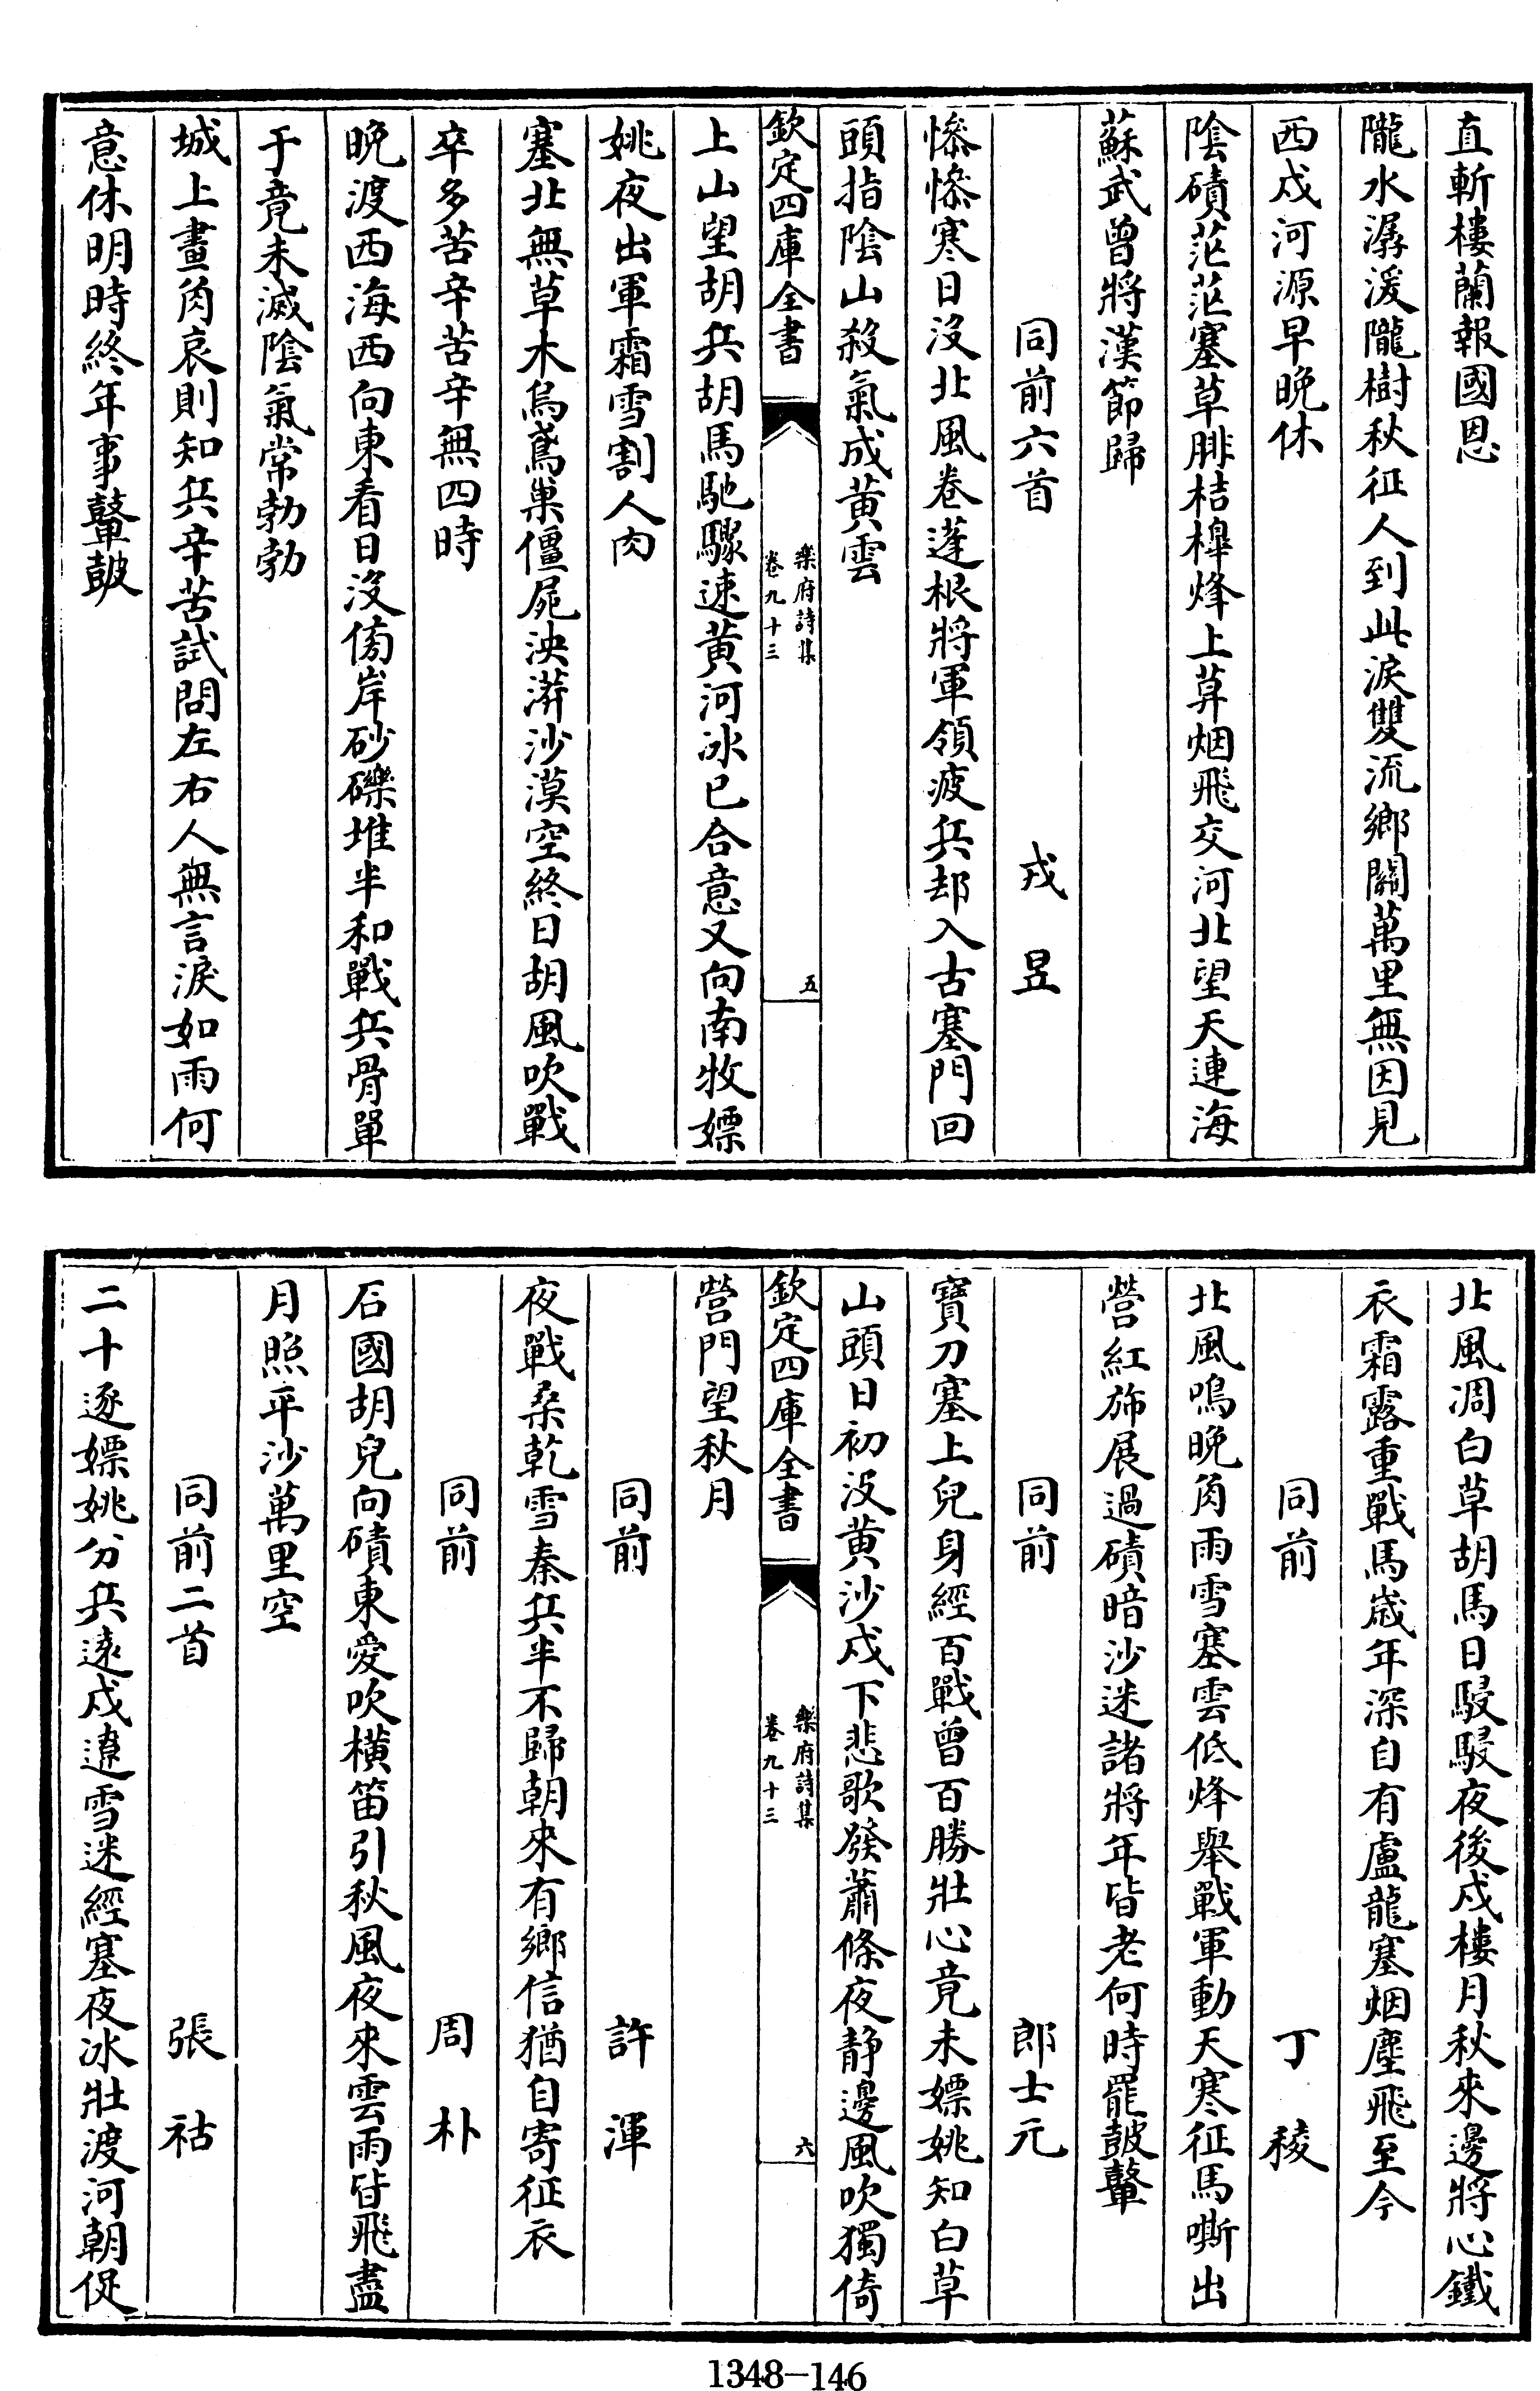 直斬樓蘭報國恩
隴水潺湲隴樹秋征人到此淚雙流鄉關萬里無因見
西戍河源早晚休
陰磧茫茫塞草腓桔橰烽上草烟飛交河北望天連海
蘇武曾將漢節歸
同前六首 戎昱
慘慘寒日沒北風卷蓬根將軍領疲兵却入古塞門回
頭指陰山殺氣成黃雲
欽定四庫全書 樂府詩集 卷九十三 五
上山望胡兵胡馬馳驟速黃河冰已合意又向南牧嫖
姚夜出軍霜雪割人肉
塞北無草木烏鳶巢僵屍泱漭沙漠空終日胡風吹戰
卒多苦辛苦辛無四時
晚渡西海西向東看日沒傍岸砂礫堆半和戰兵骨單
于竟未滅陰氣常勃勃
城上畫角哀則知兵辛苦試問左右人無言淚如雨何
意休明時終年事鼙鼓
北風凋白草胡馬日駸駸夜後戍樓月秋來邊將心鐵
衣霜露重戰馬歲年深自有盧龍塞烟塵飛至今
同前 丁稜
北風鳴晚角雨雪塞雲低烽舉戰軍動天寒征馬嘶出
營紅旆展過磧暗沙迷諸將年皆老何時罷鼓鼙
同前 郎士元
寶刀塞上兒身經百戰曾百勝壯心竟未嫖姚知白草
山頭日初沒黃沙戍下悲歌發蕭條夜靜邊風吹獨倚
欽定四庫全書 樂府詩集 卷九十三 六
營門望秋月
同前 許渾
夜戰桑乾雪秦兵半不歸朝來有鄉信猶自寄征衣
同前 周朴
石國胡兒向磧東愛吹橫笛引秋風夜來雲雨皆飛盡
月照平沙萬里空
同前二首 張祜
二十逐嫖姚分兵遠戍遼雪迷經塞夜冰壯渡河朝促
1348-146